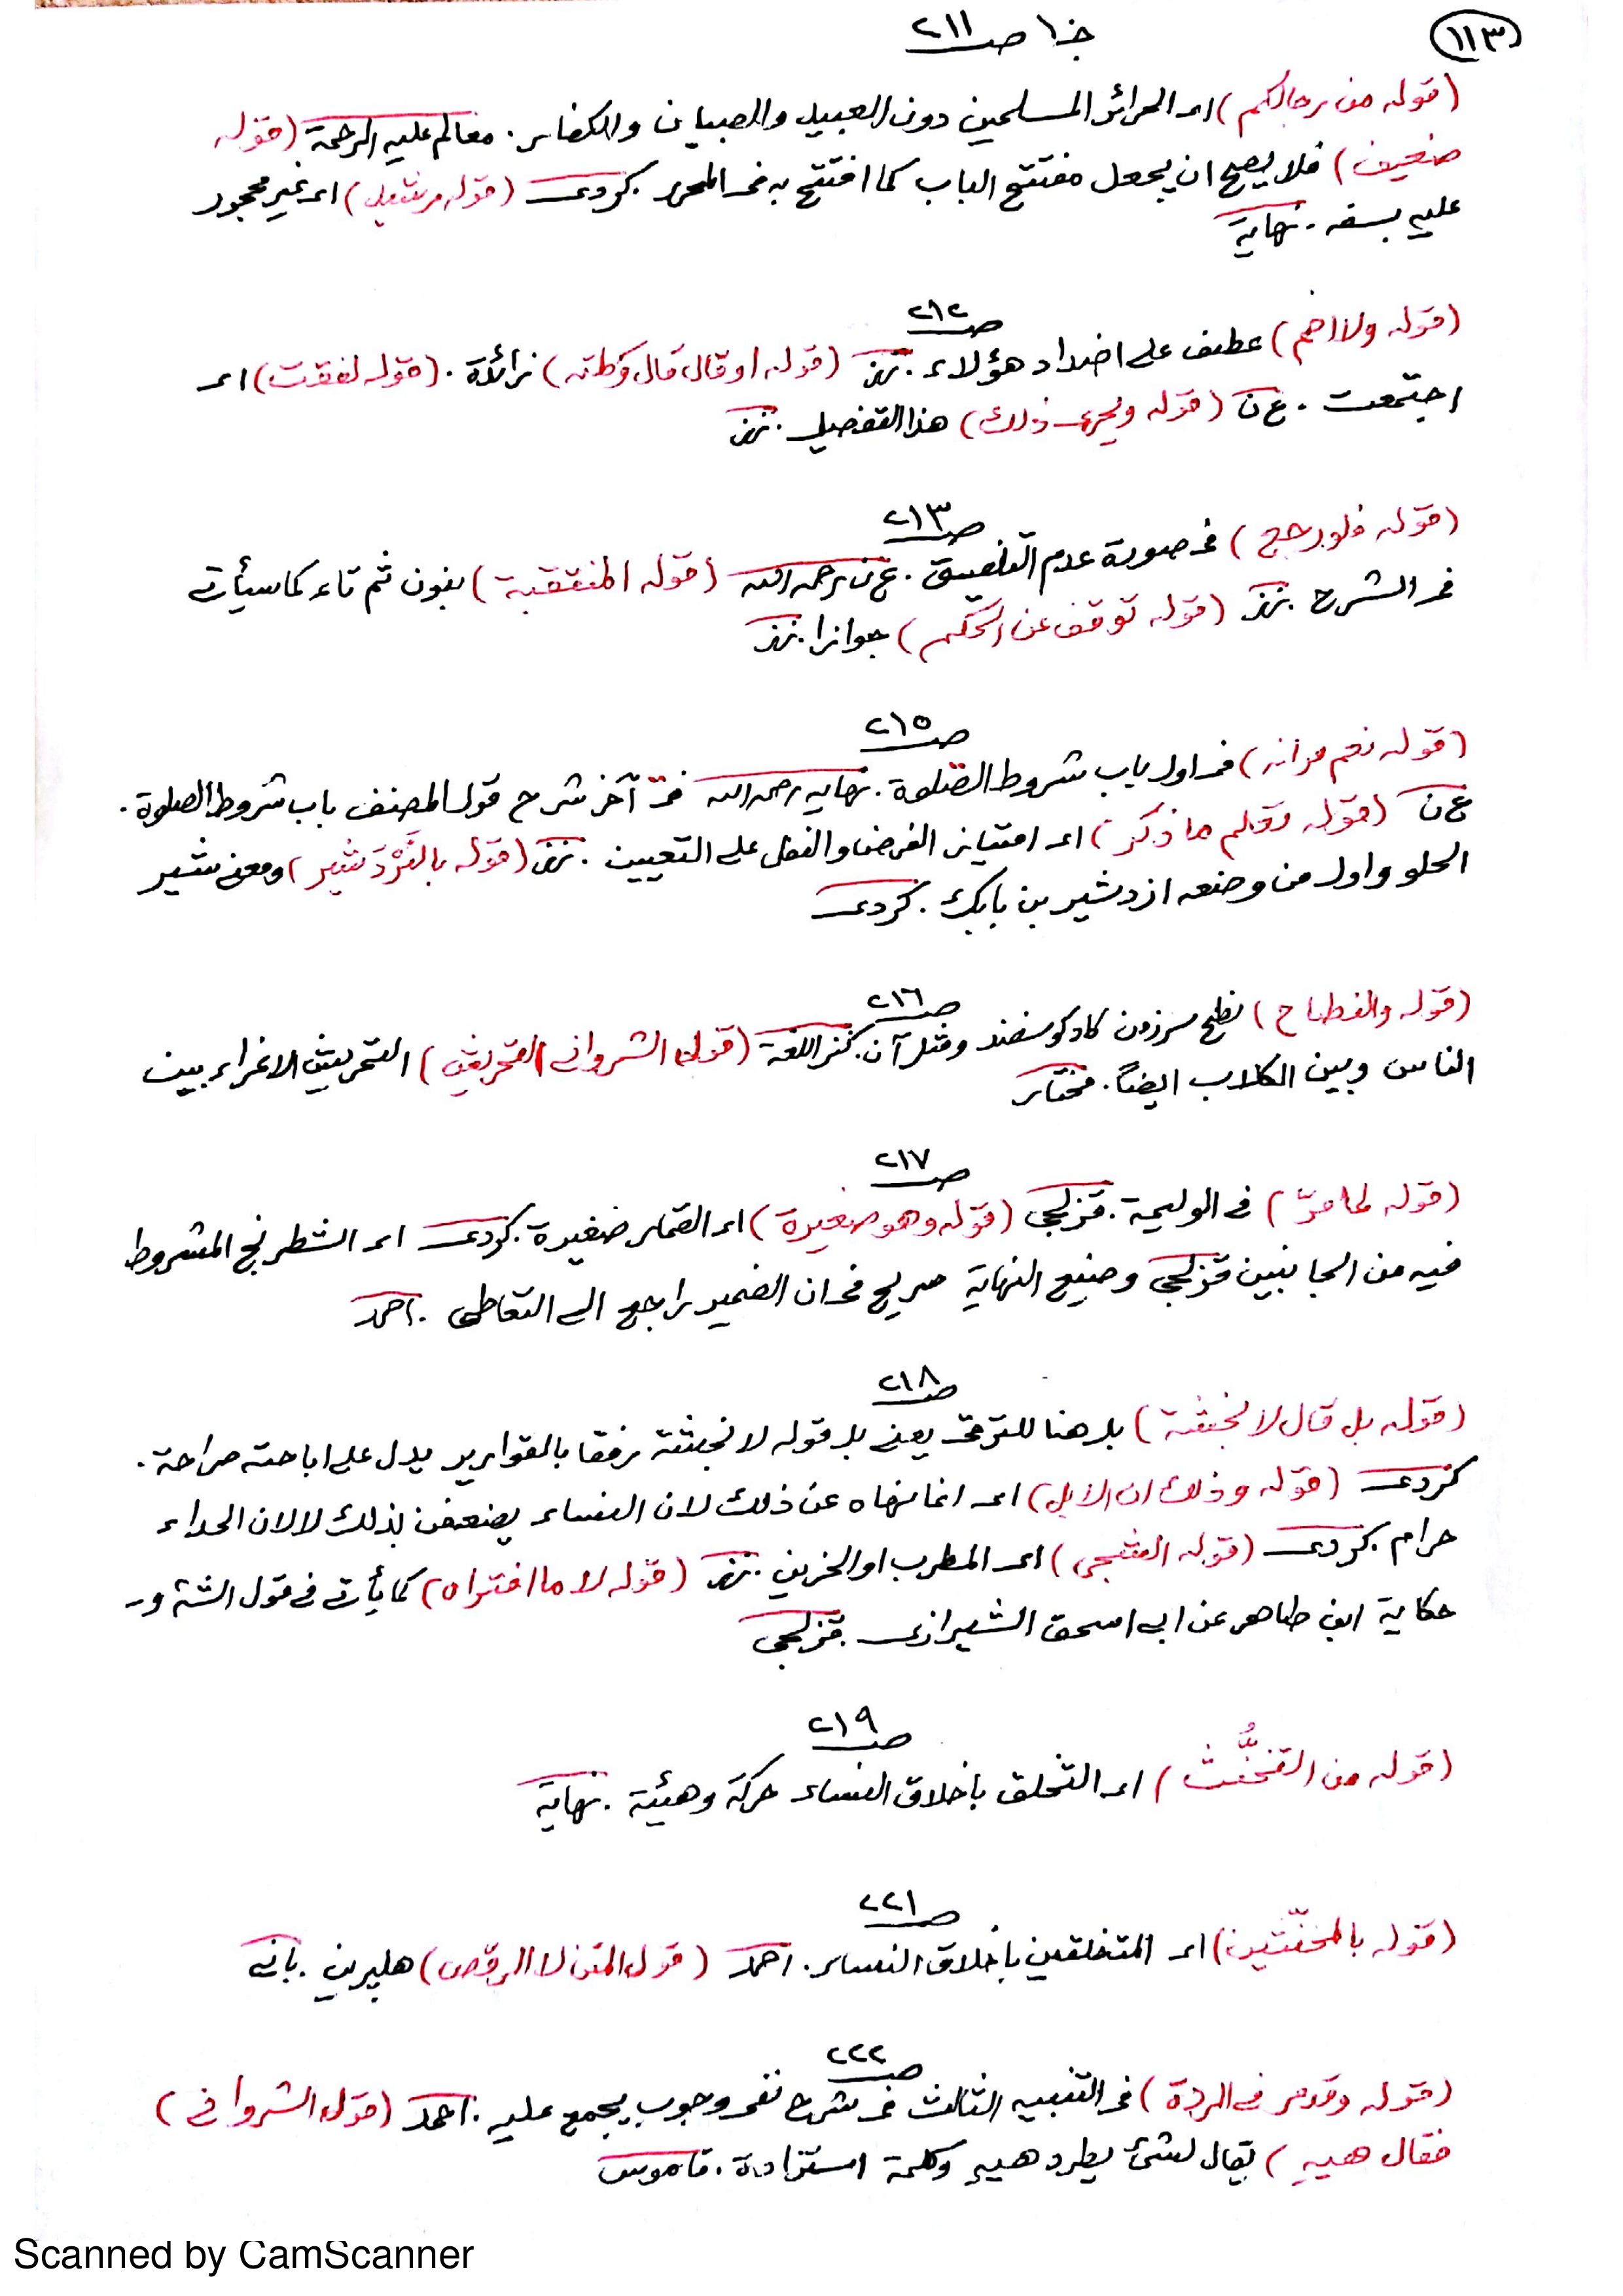 (١١٣)
جـ١٠ صـ ٢١١
(قوله من رجالكم) اى الحرائر المسلمين دون العبيد والصبيان والكفار. معالم عليه الرحمة (قوله
ضعيف) فلا يصح ان يجعل مفتتح الباب كما افتتح به فى المحرر. كردى (قوله رشيد) اى غير محجور
عليه بسفه. نهاية
صـ ٢١٢
(قوله ولا اصم) عطف على اضداد هؤلاء. (قوله او قال قال وكلته) زائدة. (قوله لفقت) اى
اجتمعت. ع ن (قوله ويجرى ذلك) هذا التفصيل.
صـ ٢١٣
(قوله فلو رجح) فى صورة عدم التلفيق. ع ن رحمه الله (قوله المنتقبة) بنون ثم تاء كما سيأتى
فى الشرح. (قوله توقف عن الحكم) جوازا.
صـ ٢١٥
(قوله نعم مر انه) فى اول باب شروط الصلوة. نهايه رحمه الله فى آخر شرح قول المصنف باب شروط الصلوة.
ع ن (قوله تعلم ما ذكر) اى امتياز الفرض والنفل على التعيين. (قوله بالنَّرْدَشير) ومعنى شير
الحلو واول من وضعه ازدشير بن بابك. كردى
صـ ٢١٦
(قوله والنطاح) نطح سرزدن كاو كوسفند ومثل آن. كنز اللغة (قول الشروانى التحريش) التحريش الاغراء بين
الناس وبين الكلاب ايضاً. مختار
صـ ٢١٧
(قوله لما مرّ) فى الوليمة. قزلجى (قوله وهو صغيرة) اى القمار صغيرة. كردى اى الشطرنج المشروط
فيه من الجانبين قزلجى وصنيع النهاية صريح فى ان الضمير راجع الى التعاطى. احمد
صـ ٢١٨
(قوله بل قال لانجشة) بل هنا للترقى يعنى بل قوله لانجشة رفقا بالقوارير يدل على اباحته صراحة.
كردى (قوله وذلك ان الابل) اى انما نهاه عن ذلك لان النساء يضعفن بذلك لا لان الحداء
حرام. كردى (قوله الشجى) اى المطرب او الحزين. (قوله لا ما افتراه) كما يأتى فى قول الش ور
حكاية ابن طاهر عن ابى اسحق الشيرازى. قزلجى
صـ ٢١٩
(قوله من التخنُّث) اى التخلق باخلاق النساء حركة وهيئة. نهاية
صـ ٢٢١
(قوله بالمخنّثين) اى المتخلقين باخلاق النساء. احمد (قول المتن لا الرقص) هلبرين. بانى
صـ ٢٢٢
(قوله وقدم فى الردة) فى التنبيه الثالث فى شرح نفى وجوب يجمع عليه. احمد (قول الشروانى)
فقال هيه) يقال لشئ يطرد هيه وكلمة استزادة. قاموس
Scanned by CamScanner